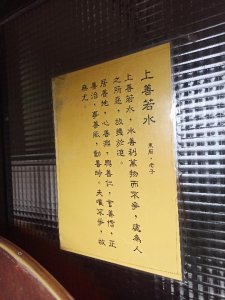 上善若水
東周・老子
上善若水,水善利萬物而不爭,處眾人
之所惡,故幾於道。
居善地,心善淵,與善仁,言善信,正
善治,事善能,動善時。夫唯不爭,故
無尤。